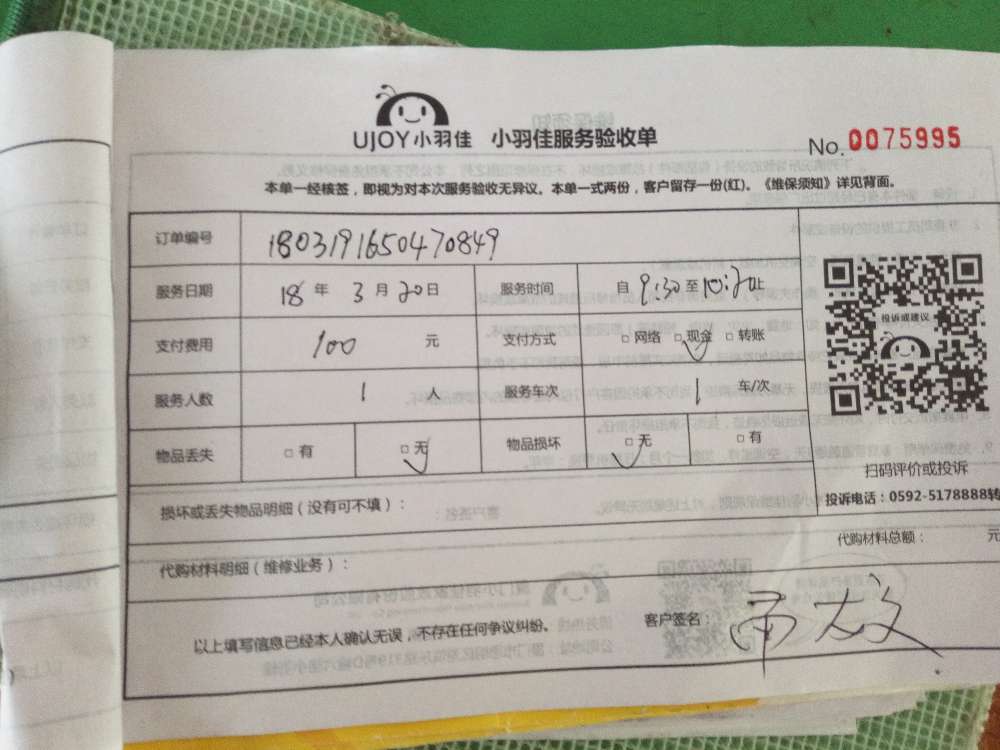 UJOY小羽佳 小羽佳服务验收单
No.0075995
本单一经核签，即视为对本次服务验收无异议。本单一式两份，客户留存一份(红)。《维保须知》详见背面。
订单编号 1803191650470849
服务日期 18年3月20日 服务时间 自9:30至10:20止
支付费用 100元 支付方式 □网络 □现金 □转账
服务人数 1人 服务车次 1车/次
物品丢失 □有 □无 物品损坏 □无 □有
投诉或建议
扫码评价或投诉
投诉电话：0592-5178888转
损坏或丢失物品明细（没有可不填）：
代购材料总额： 元
代购材料明细（维修业务）：
以上填写信息已经本人确认无误，不存在任何争议纠纷。 客户签名：